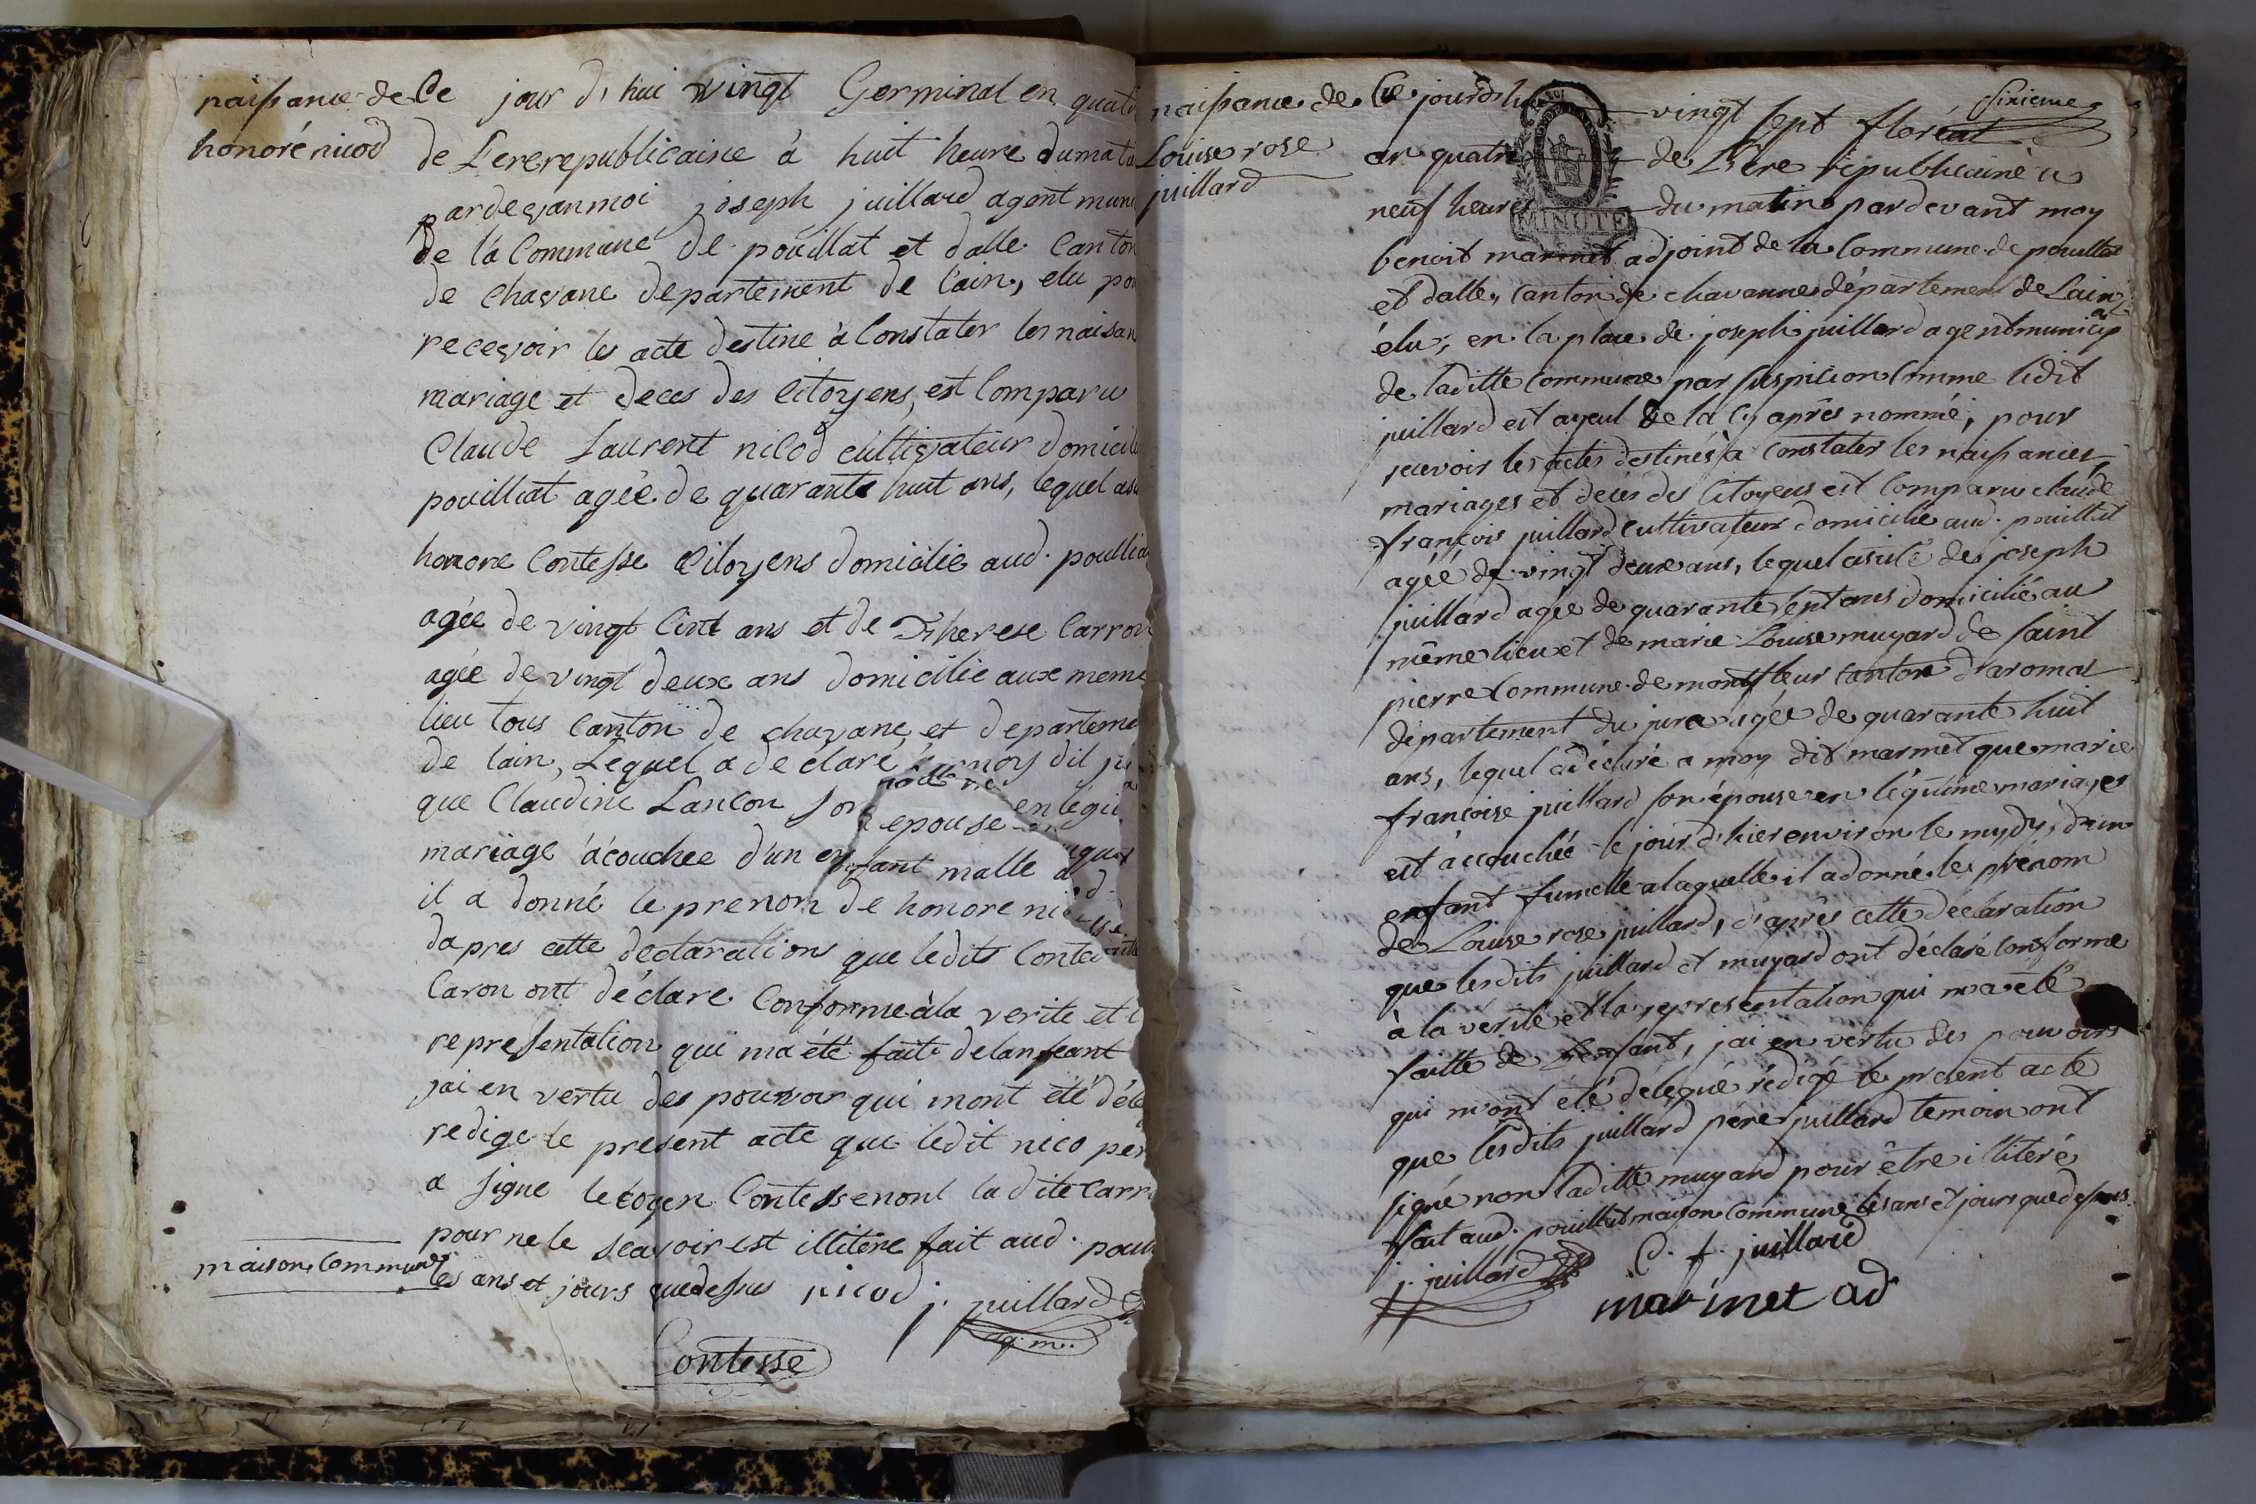 naissance de
honoré nicod
Ce jour d'hui vingt Germinal en quat
de Lere republicaine à huit heure du mat
par devan moi joseph juillard agent mun
de la Commune de pouillat et dalle Canton
de chavane departement de lain, elu po
recevoir les acte destine à Constater les naisan
mariage et deces des Citoyens, est Comparu
Claude Laurent nicod cultivateur domicil
pouilliat agée de quarante huit ans, lequel as
honore Contesse Citoyens domicilie aud. pouillia
agée de vingt Cint ans et de Therese Carron
agée de vingt deux ans domicilie aux meme
lieu tous Canton de chavane et departeme
de lain, Lequel a déclaré moy dit ju
que Claudine Lancon son epouse en légi
mariage acouchee d'un enfant malle
il a donné le prenom de honore ni
dapres cette declarations que ledits Conte
Caron ont déclare Conforme à la verite et l
representation qui ma été faite de lanfeant
jai en vertu des pouvoir qui mont été dél
redige le present acte que ledit nico per
a signe le toyen Contesse nont la dite Carr
pour ne le scavoir est illitére fait aud. pouil
maison Commune
les ans et jours que dessus nicod j. juillard
ag. m.
Contesse
naissance de
Louise rose
juillard
sixieme
Ce jourd'h vingt sept floreal
an quatre de L'ere républicaine a
neuf heure du matin pardevant moy
MINUTE
benoit marmet adjoint de la Commune de pouillat
et dalle, Canton de chavanne département de Lain
élu, en la place de joseph juillard agent municip
al
de laditte Commune par suspicion Comme ledit
juillard est ayeul de la Cy après nommé, pour
recevoir les actes destinés à Constater les naissances
mariages et décès des Citoyens est Comparu claude
françois juillard cultivateur domicilié aud. pouillat
agéé de vingt deux ans, lequel asisté de joseph
juillard agée de quarante sept ans domicilié au
même lieu et de marie Louise muyard de saint
pierre Commune de montfleur canton d'aromas
département du jura agée de quarante huit
ans, lequel a déclaré a moy dit marmet que marie
françoise juillard son épouse en légitime mariage
est accouchée le jour d'hier environ le mydy, d'un
enfant fumelle a laquelle il a donné le prénom
de Louise rose juillard, d'après cette déclaration
que lesdits juillard et muyard ont déclaré Conforme
à la verité et la representation qui m'a été
faitte de L'enfant, jai en vertu des pouvoirs
qui m'ont été délégué rédigé le present acte
que lesdits juillard père juillard temoin ont
signé non laditte muyard pour être illitéré
fait aud. pouillat maison Commune les ans et jours que dessus
j. juillard C. f. juillard
marmet ad